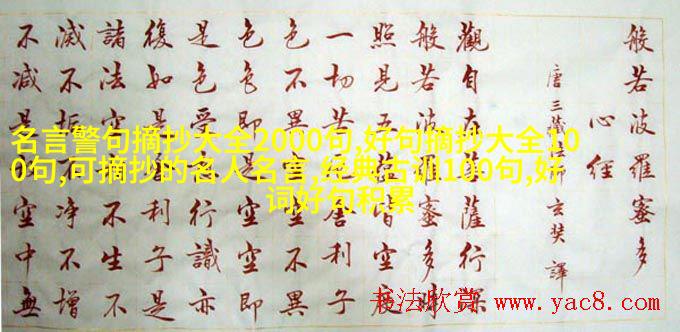 名言警句摘抄大全2000句,好句摘抄大全10
0句,可摘抄的名人名言,经典古训100句,好
词好句积累
般若波羅蜜多
心經
唐三藏法師玄奘譯
觀自在薩行深
般若波羅蜜多時
照見五皆空度
一切苦舍利子
色不異空不異
色色即是空空即
是色受行識亦
復如是利子是
諸法空不生不
滅不垢淨不增
不減是空中無
书法欣赏 www.yac8.com